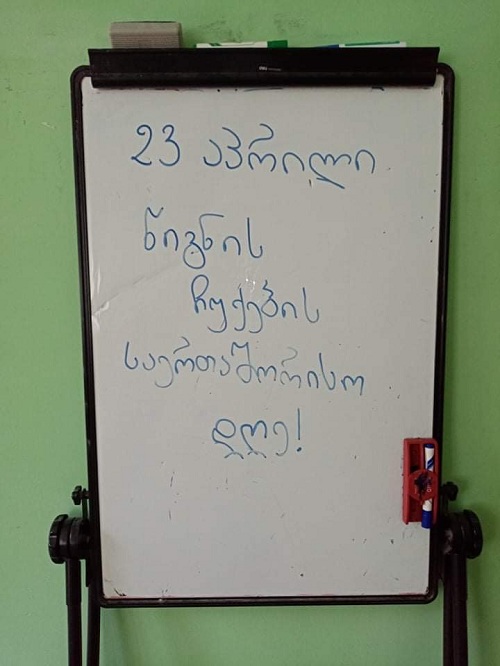 23 აპრილი
წიგნის
ჩუქების
საერთაშორისო
დღე!